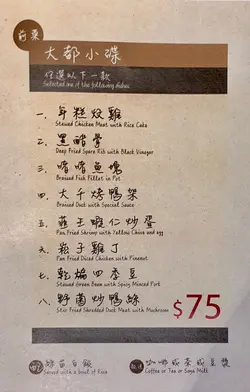 前菜
大都小碟
任選以下一款
Selected one of the following dishes
一、年糕炆雞
Stewed Chicken Meat with Rice Cake
二、黑醋骨
Deep Fried Spare Rib with Black Vinegar
三、啫啫魚塊
Braised Fish Fillet in Pot
四、大千烤鴨架
Braised Duck with Special Sauce
五、韮王蝦仁炒蛋
Pan Fried Shrimp with Yellow Chive and egg
六、菘子雞丁
Pan Fried Diced Chicken with Pinenut
七、乾煸四季豆
Stewed Green Bean with Spicy Minced Pork
八、野菌炒鴨絲
Stir Fried Shredded Duck Meat with Mushroom
$75
絲苗白飯
Served with a bowl of Rice
咖啡或茶或豆漿
Coffee or Tea or Soya Milk